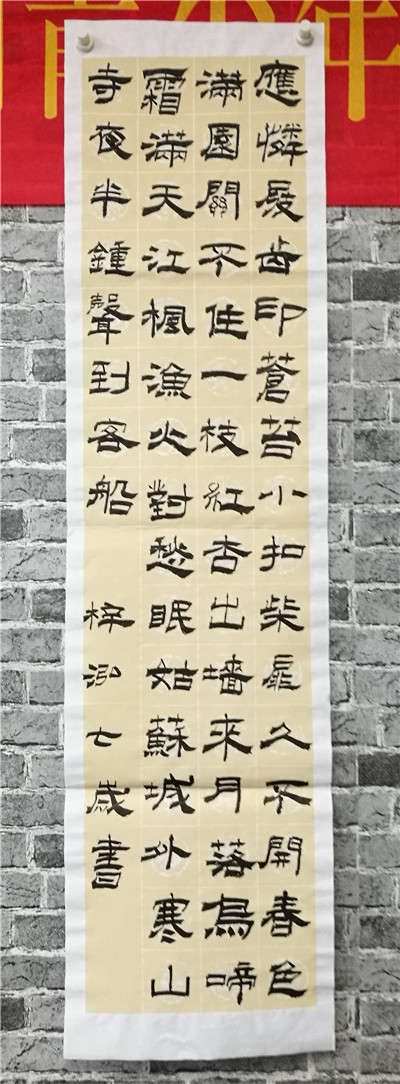 青少年
應憐屐齿印蒼苔小扣柴扉久不開春色
滿園關不住一枝紅杏出墻來月落烏啼
霜滿天江楓漁火對愁眠姑蘇城外寒山
寺夜半鍾聲到客船 梓泓七歲書